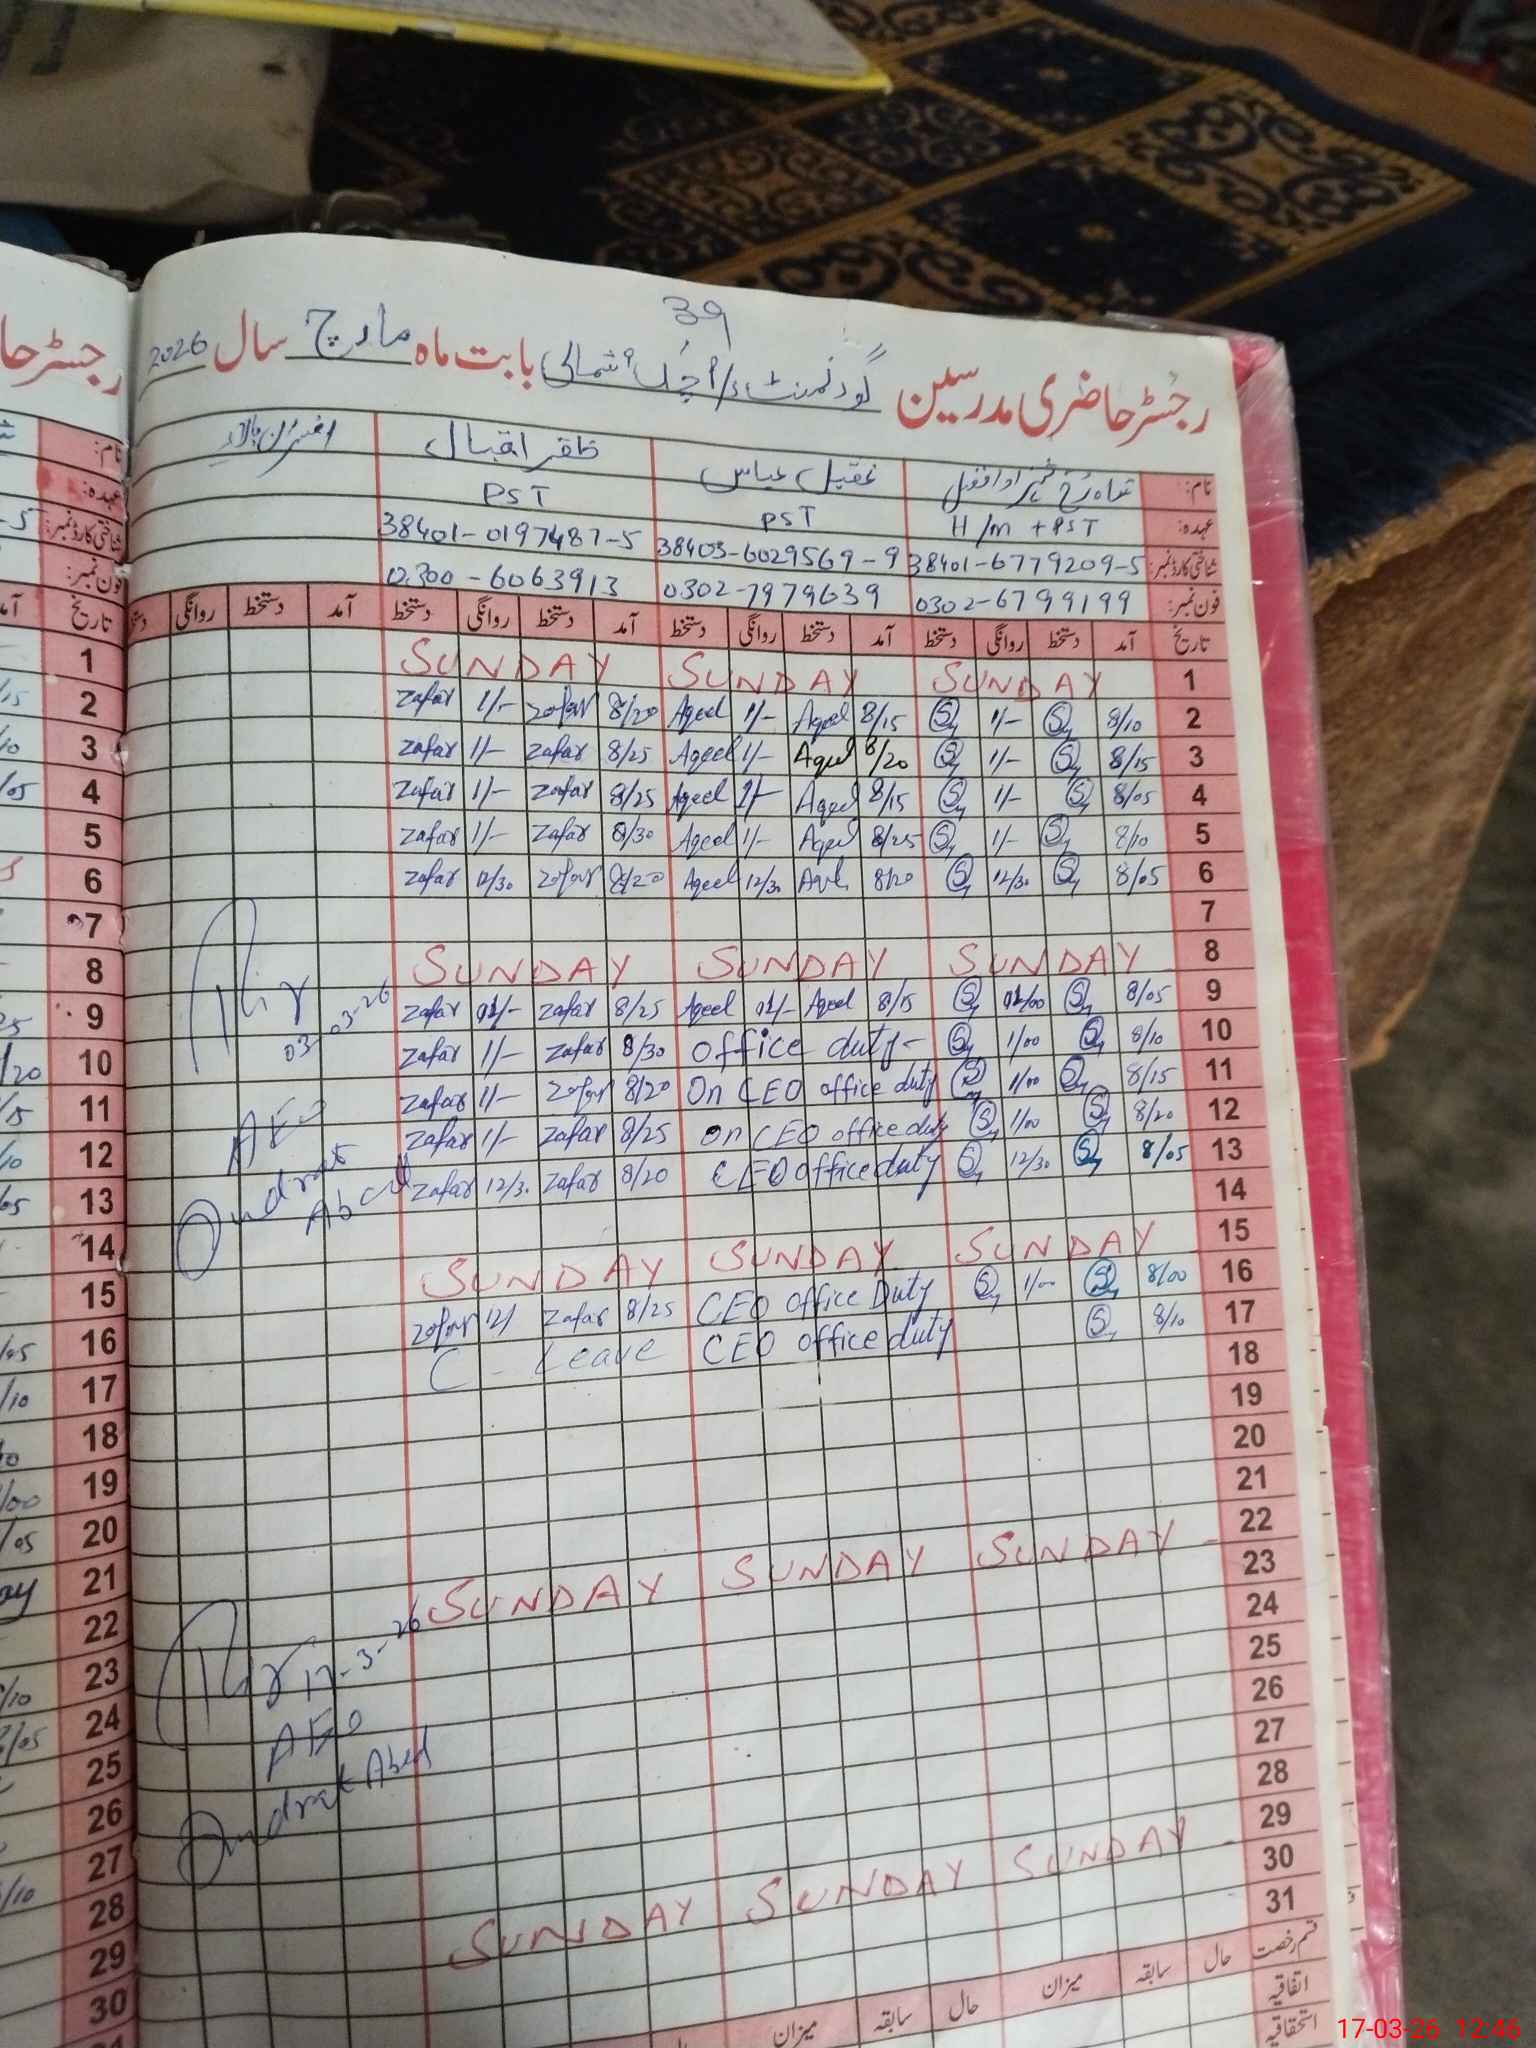 39
رجسٹر حاضری مدرسین گورنمنٹ شمالی بابت ماہ مارچ سال 2026
نام: عقیل عباس ظفر اقبال افسران بالا
عہدہ: H/m + PST PST PST
شناختی کارڈ نمبر: 38401-6779209-5 38403-6029569-9 38401-0197487-5
فون نمبر: 0302-6799199 0302-7979639 0300-6063913
تاریخ آمد دستخط روانگی دستخط آمد دستخط روانگی دستخط آمد دستخط روانگی دستخط آمد دستخط روانگی
1 SUNDAY SUNDAY SUNDAY 1
2 zafar 1/- zafar 8/20 Aqeel 1/- Aqeel 8/15 1/- 8/10 2
3 zafar 1/- zafar 8/25 Aqeel 1/- Aqeel 8/20 1/- 8/15 3
4 zafar 1/- zafar 8/25 Aqeel 1/- Aqeel 8/15 1/- 8/05 4
5 zafar 1/- zafar 8/30 Aqeel 1/- Aqeel 8/25 1/- 8/10 5
6 zafar 12/30 zafar 8/20 Aqeel 12/30 8/20 12/30 8/05 6
7 7
8 SUNDAY SUNDAY SUNDAY 8
9 zafar 01/- zafar 8/25 Aqeel 01/- Aqeel 8/15 01/00 8/05 9
03-03-26
10 zafar 1/- zafar 8/30 office duty- 1/00 8/10 10
11 zafar 1/- zafar 8/20 On CEO office duty 1/00 8/15 11
AEO
12 zafar 1/- zafar 8/25 on CEO office duty 1/00 8/20 12
Qudrat Abed
13 zafar 12/30 zafar 8/20 CEO office duty 12/30 8/05 13
14 14
15 SUNDAY SUNDAY SUNDAY 15
16 zafar 12/ zafar 8/25 CEO office Duty 1/00 8/00 16
17 C - Leave CEO office duty 8/10 17
18 18
19 19
20 20
21 21
22 SUNDAY SUNDAY SUNDAY 22
23 17-3-26 23
24 AEO 24
25 Qudrat Abed 25
26 26
27 27
28 28
29 SUNDAY SUNDAY SUNDAY 29
30 30
31
قسم رخصت حال سابقہ میزان حال سابقہ میزان
اتفاقیہ
استحقاقیہ
17-03-26 12:46